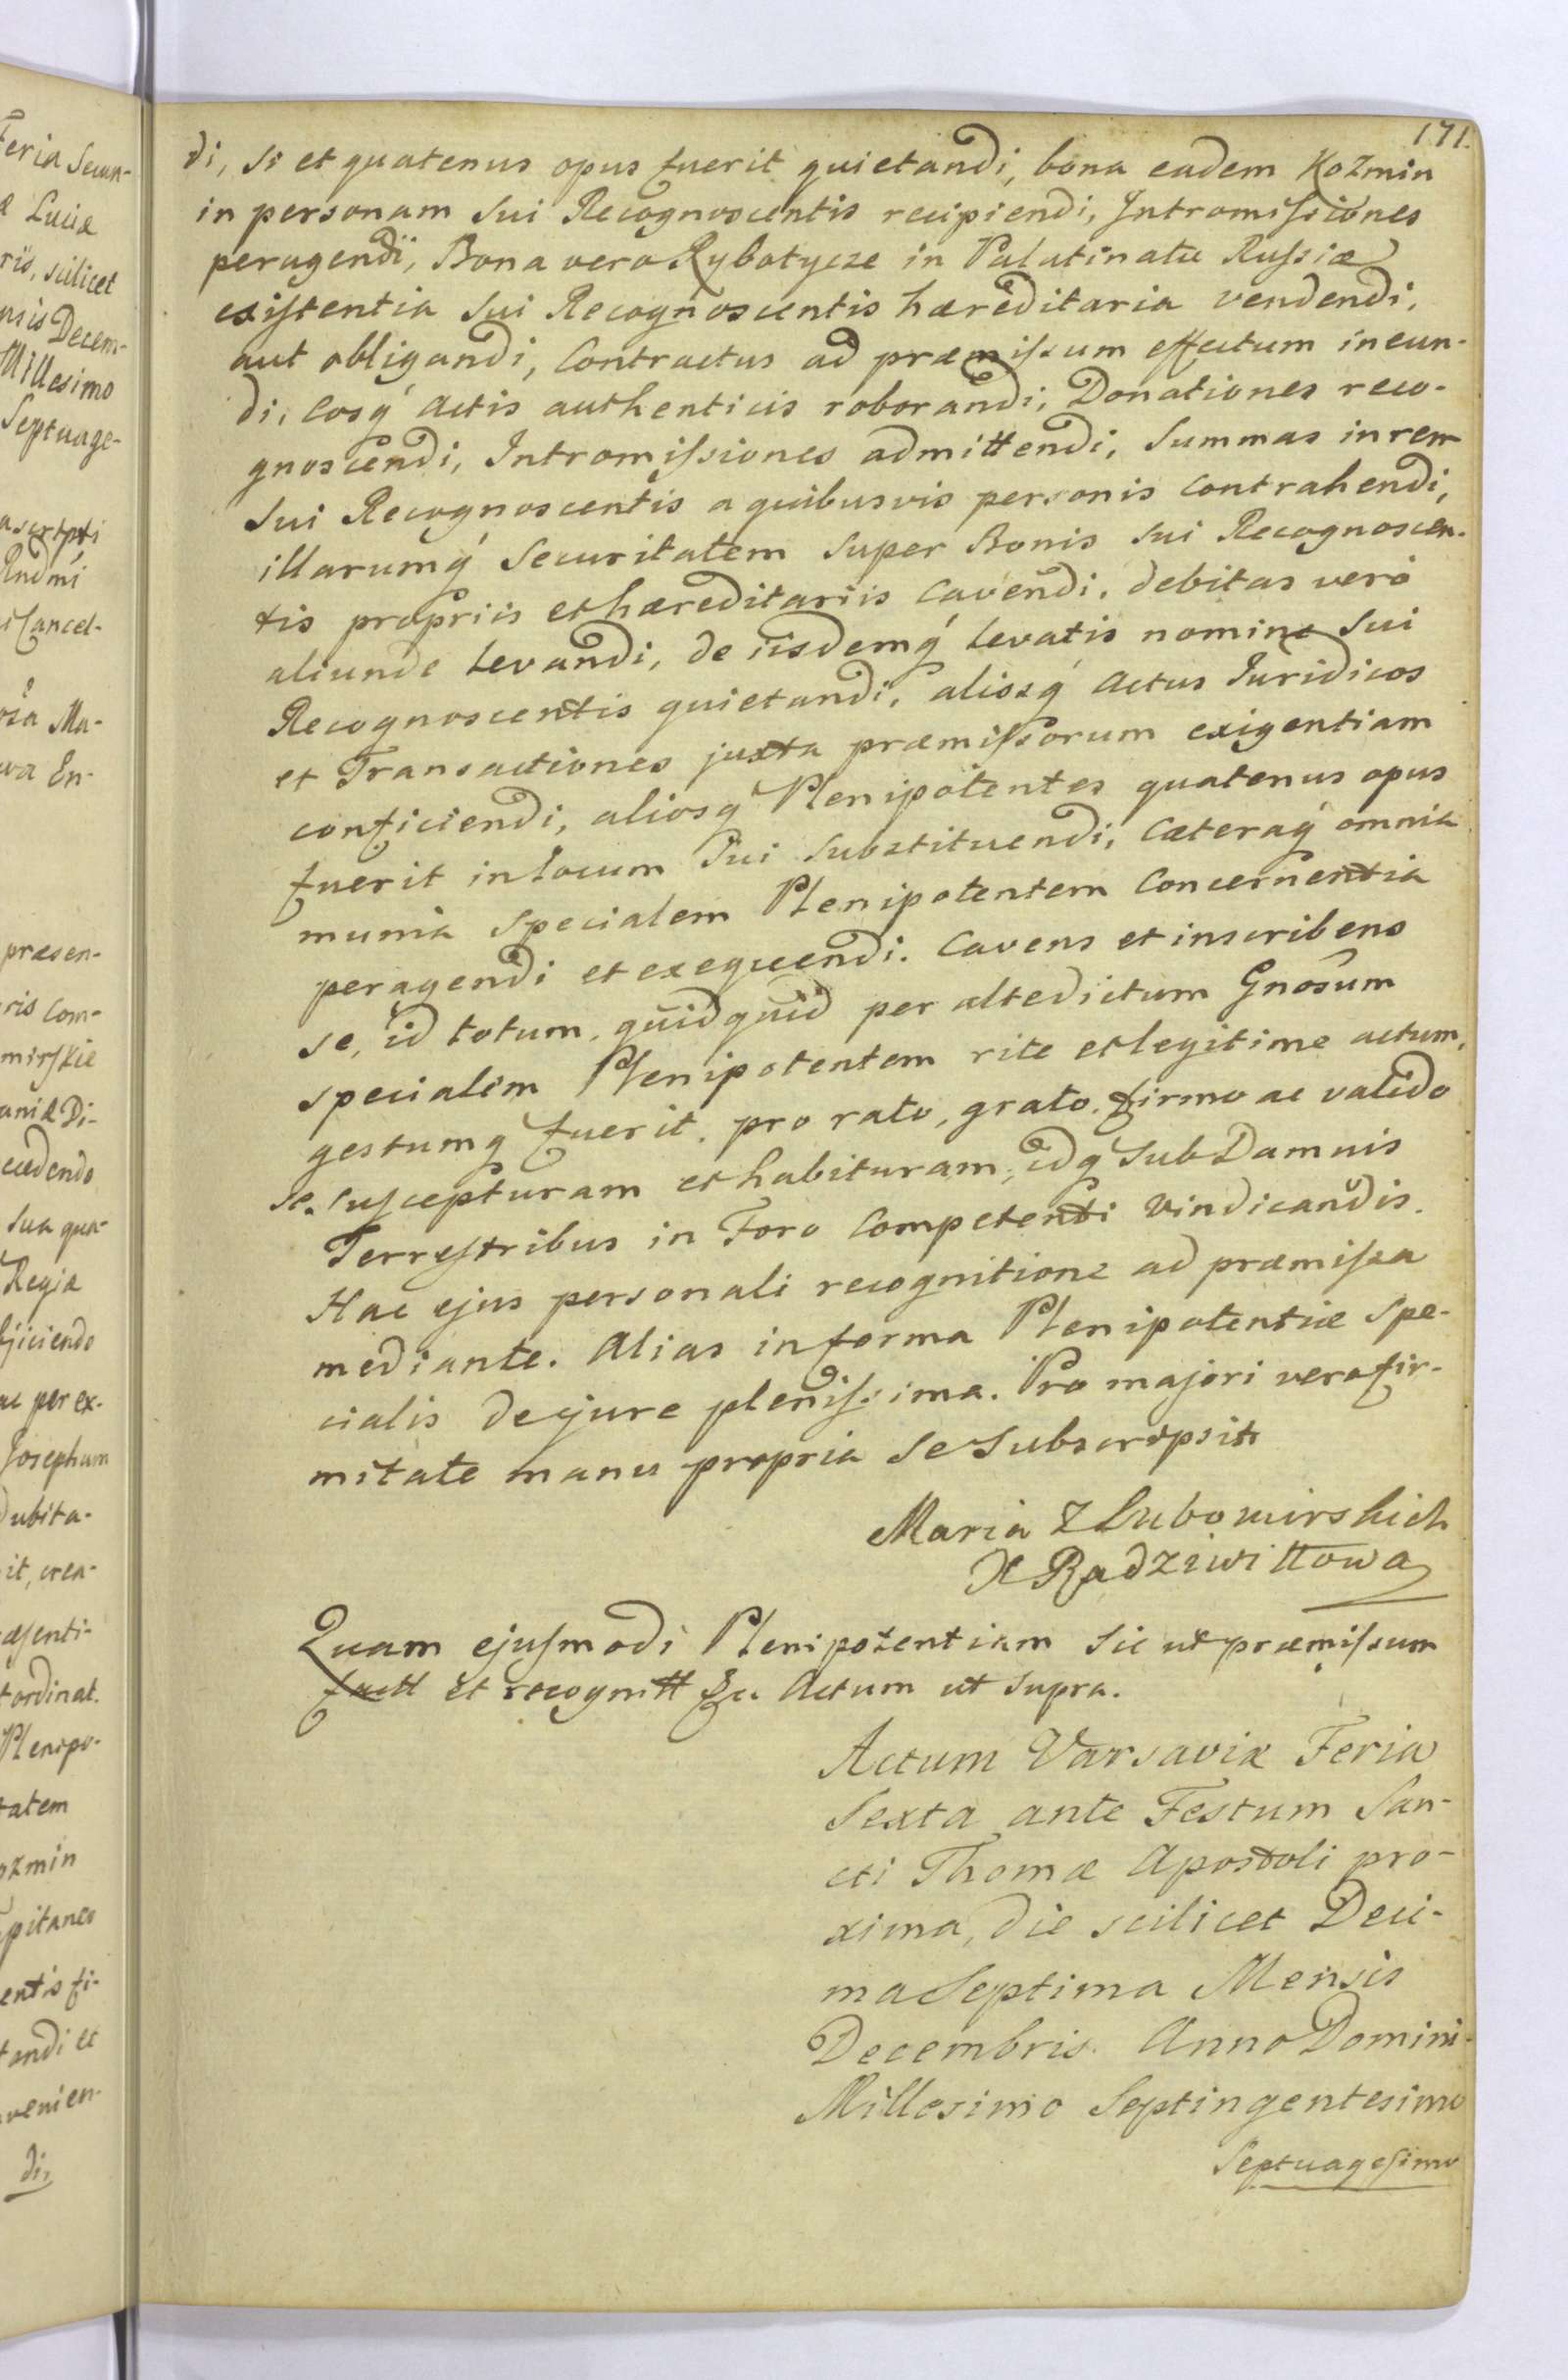 171.
di, si et quatenus opus fuerit quietandi, bona eadem Kozmin
in personam sui Recognoscentis recipiendi, Intromissiones
peragendi, Bona vero Rybotycze in Palatinatu Russiæ
existentia sui Recognoscentis hæreditaria vendendi,
aut obligandi, Contractus ad præmissum effectum ineun-
di, eosq́ Actis authenticis roborandi, Donationes reco-
gnoscendi, Intromissiones admittendi, Summas in rem
sui Recognoscentis a quibusvis personis Contrahendi,
illarumq́ Securitatem super Bonis sui Recognoscen-
tis propriis et hæreditariis Cavendi, debitas verò
aliunde levandi, de iisdemq́ levatis nomine sui
Recognoscentis quietandi, aliosq́ Actus Juridicos
et Transactiones juxta præmissorum exigentiam
conficiendi, aliosq́ Plenipotentes quatenus opus
fuerit in locum sui substituendi, Cæteraq́ omnia
munia specialem Plenipotentem Concernentia
peragendi et exequendi. Cavens et inscribens
se, id totum, quidquid per altedictum Gnosum
specialem Plenipotentem rite et legitime actum,
gestumq fuerit, pro rato, grato, firmo ac valido
se suscepturam et habituram, idq sub Damnis
Terrestribus in Foro Competenti vindicandis.
Hac ejus personali recognitione ad præmissa
mediante. Alias in forma Plenipotentiæ spe-
cialis de jure plenissima. Pro majori vero fir-
mitate manu propria se subscripsit
Maria z Lubomirskich
X Radziwiłłowa
Quam ejusmodi Plenipotentiam sic ut præmissum
et Actum ut supra.
Actum Varsaviæ Feria
Sexta ante Festum San-
cti Thomæ Apostoli pro-
xima, die scilicet Deci-
ma Septima Mensis
Decembris Anno Domini
Millesimo Septingentesimo
Septuagesimo